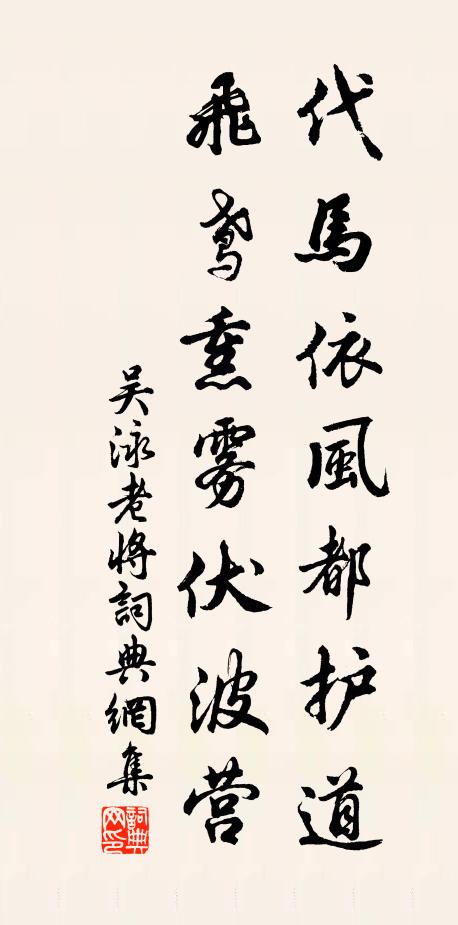 代馬依風都护道
飛鸢熏雾伏波营
吴泳老将詞典網集
詞典网印